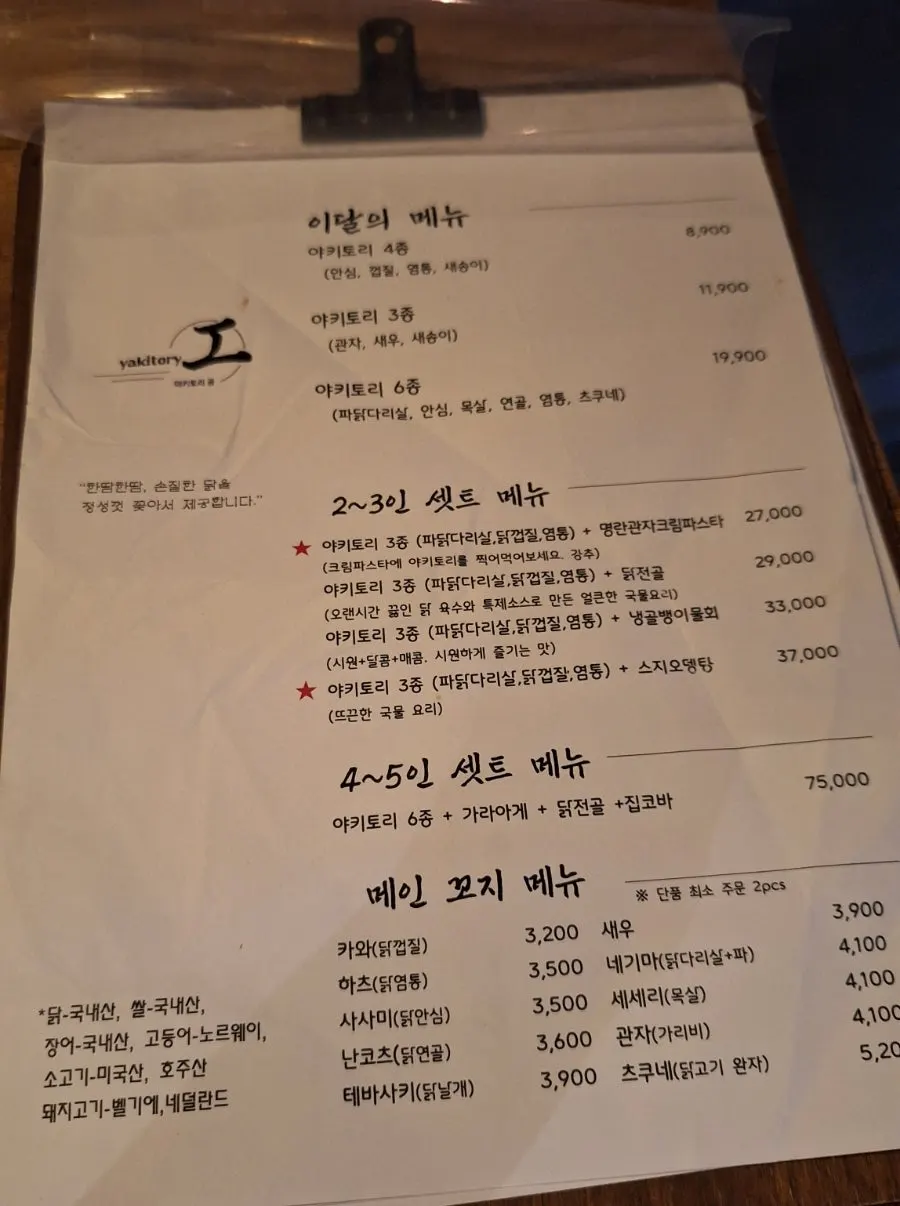 이달의 메뉴
야키토리 4종 8,900
(안심, 껍질, 염통, 새송이)
야키토리 3종 11,900
(관자, 새우, 새송이)
야키토리 6종 19,900
(파닭다리살, 안심, 목살, 연골, 염통, 츠쿠네)
yakitory 工
야키토리 공
"한땀한땀, 손질한 닭을
정성껏 꽂아서 제공합니다."
2~3인 셋트 메뉴
★ 야키토리 3종 (파닭다리살,닭껍질,염통) + 명란관자크림파스타 27,000
(크림파스타에 야키토리를 찍어먹어보세요. 강추)
야키토리 3종 (파닭다리살,닭껍질,염통) + 닭전골 29,000
(오랜시간 끓인 닭 육수와 특제소스로 만든 얼큰한 국물요리)
야키토리 3종 (파닭다리살,닭껍질,염통) + 냉골뱅이물회 33,000
(시원+달콤+매콤. 시원하게 즐기는 맛)
★ 야키토리 3종 (파닭다리살,닭껍질,염통) + 스지오뎅탕 37,000
(뜨끈한 국물 요리)
4~5인 셋트 메뉴
야키토리 6종 + 가라아게 + 닭전골 +집코바 75,000
메인 꼬지 메뉴
※ 단품 최소 주문 2pcs
카와(닭껍질) 3,200 새우 3,900
하츠(닭염통) 3,500 네기마(닭다리살+파) 4,100
사사미(닭안심) 3,500 세세리(목살) 4,100
난코츠(닭연골) 3,600 관자(가리비) 4,100
테바사키(닭날개) 3,900 츠쿠네(닭고기 완자) 5,20
*닭-국내산, 쌀-국내산,
장어-국내산, 고등어-노르웨이,
소고기-미국산, 호주산
돼지고기-벨기에,네덜란드